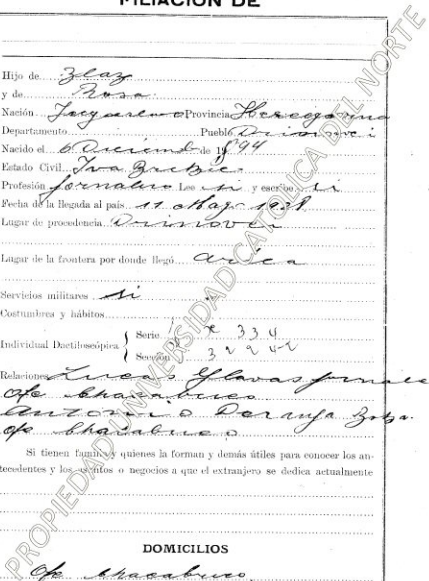 FILIACIÓN DE
Hijo de Blaz
y de Rosa
Nación Provincia Hercegovina
Departamento Pueblo Drinovci
Nacido el 6 Diciemb de 1894
Estado Civil Iva
Profesión Jornalero Lee si y escribe si
Fecha de la llegada al país 11 Mayo 1928
Lugar de procedencia Drinovci
Lugar de la frontera por donde llegó Arica
Servicios militares si
Costumbres y hábitos
Individual Dactiloscópica { Serie 334
Sección 32242
Relaciones Lucas Glavas jornale
Ofc Chacabuco
Antonio
Ofc Chacabuco
Si tienen familia y quienes la forman y demás útiles para conocer los an-
tecedentes y los asuntos o negocios a que el extranjero se dedica actualmente
DOMICILIOS
Ofc Chacabuco
PROPIEDAD UNIVERSIDAD CATOLICA DEL NORTE